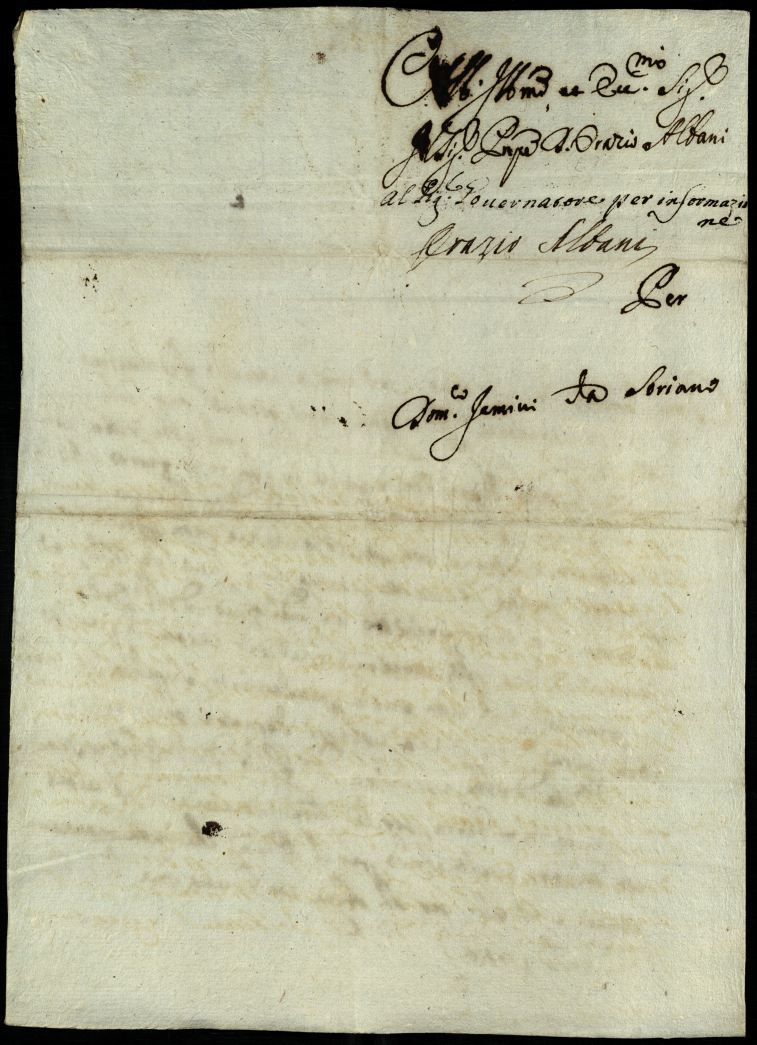 All. Ill.mo et Ecc.mo Sig.r
Il Sig.r Pnpe D. Orazio Albani
al Sig.re Governatore per informazio
ne
Orazio Albani
Per
Dom.co Jemini da Soriano